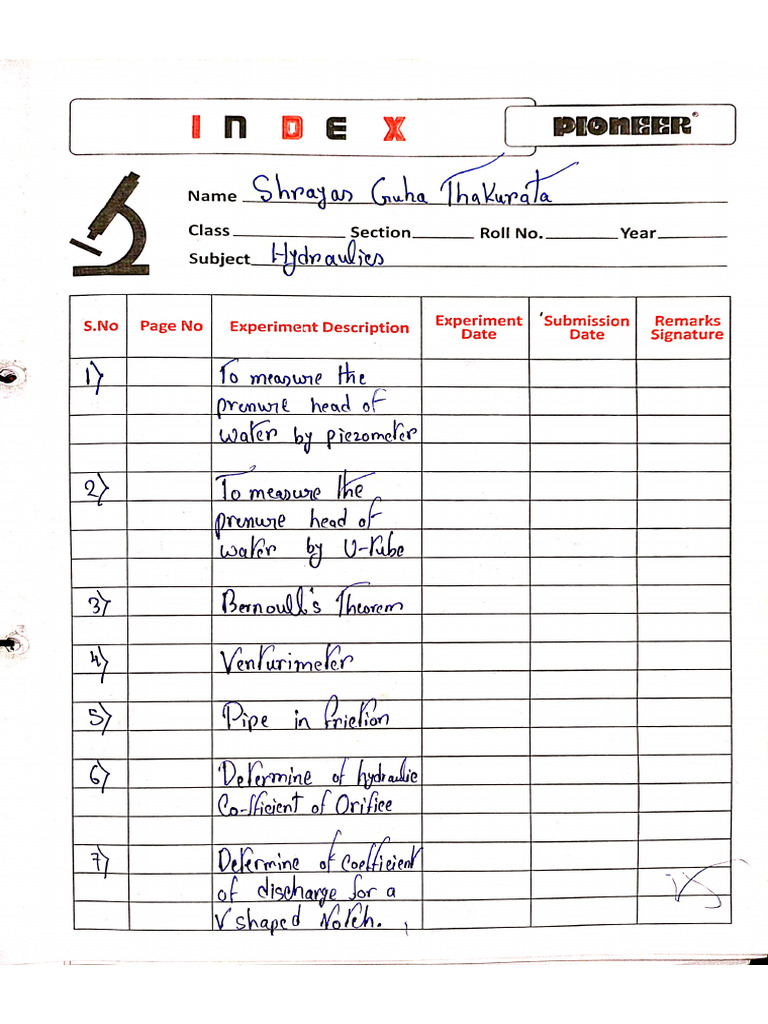 INDEX
PIONEER®
Name Shrayas Guha Thakurata
Class Section Roll No. Year
Subject Hydraulics
S.No Page No Experiment Description Experiment Date Submission Date Remarks Signature
1) To measure the
pressure head of
water by piezometer
2) To measure the
pressure head of
water by U-tube
3) Bernoulli's Theorem
4) Venturimeter
5) Pipe in friction
6) Determine of hydraulic
Co-fficient of Orifice
7) Determine of coefficient
of discharge for a
V shaped Notch.